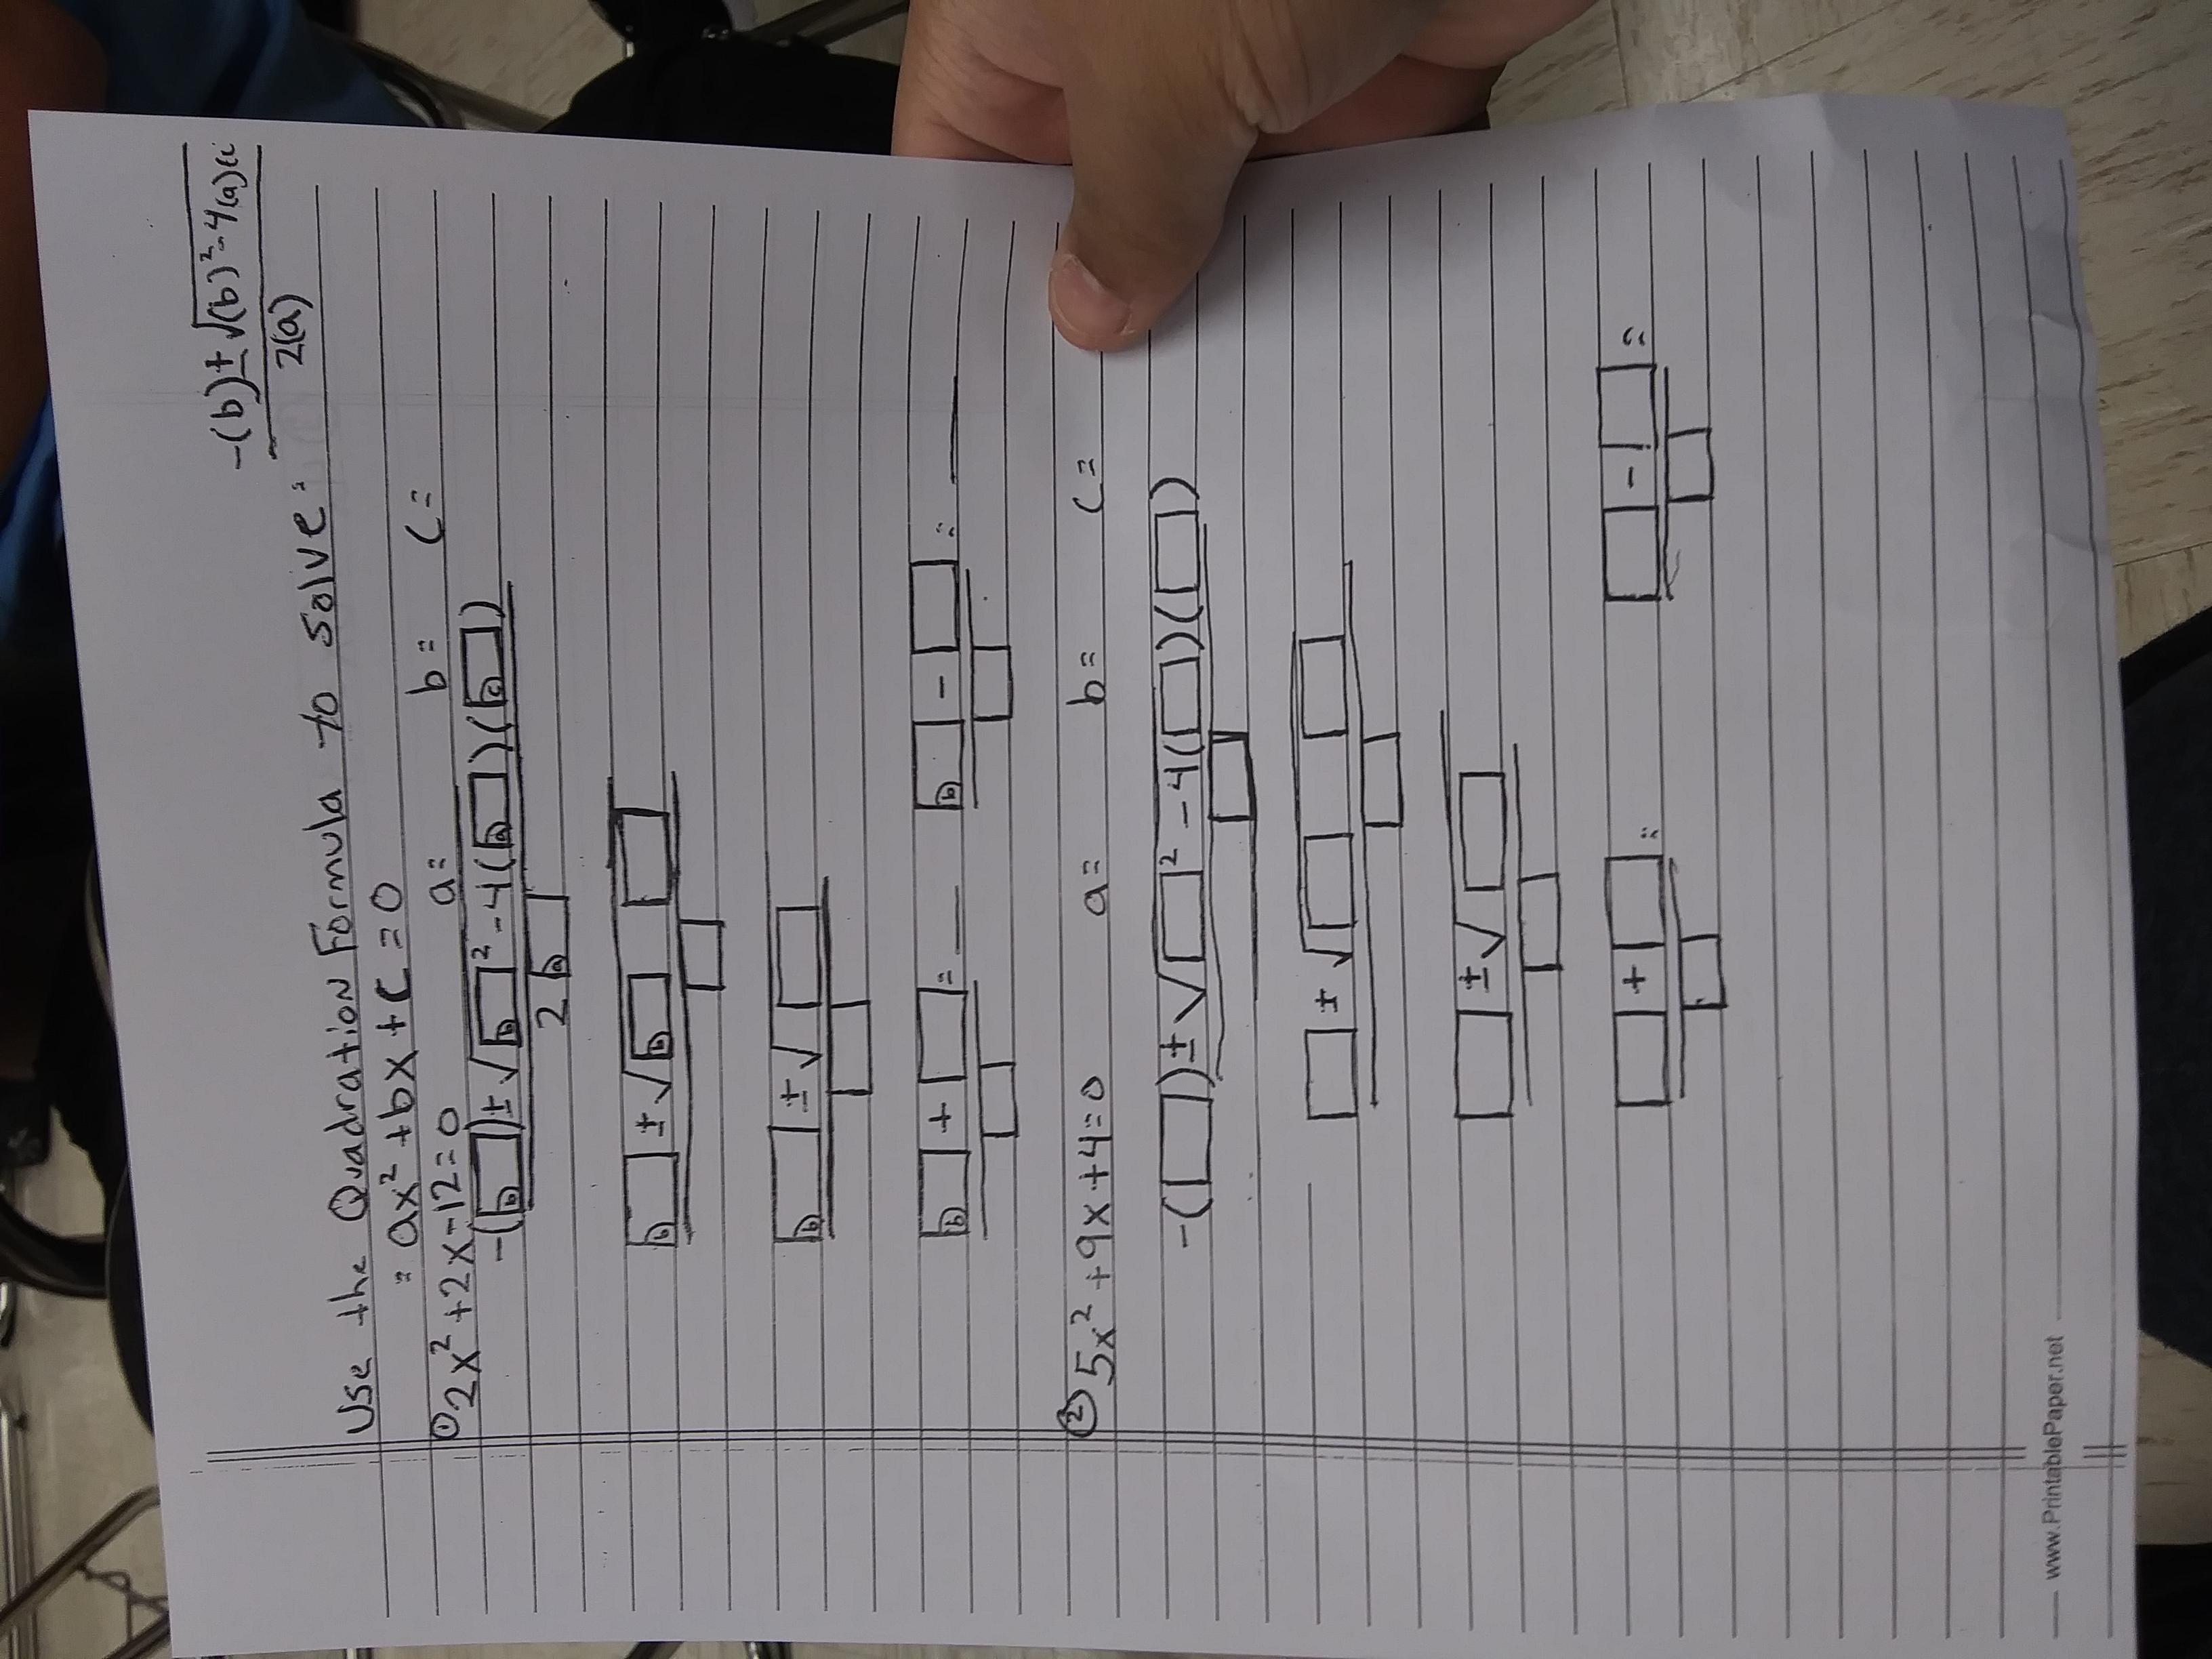 -(b) ± √(b)² - 4(a)(c
2(a)
Use the Quadration Formula to Solve:
= ax² + bx + c = 0
① 2x² + 2x - 12 = 0 a= b= c=
-(b) ± √b² - 4(a)(c)
2a
b ± √b
b ± √
b + = b - =
② 5x² + 9x + 4 = 0 a= b= c=
-( ) ± √ ² - 4( )( )
± √
± √
+ = - =
www.PrintablePaper.net